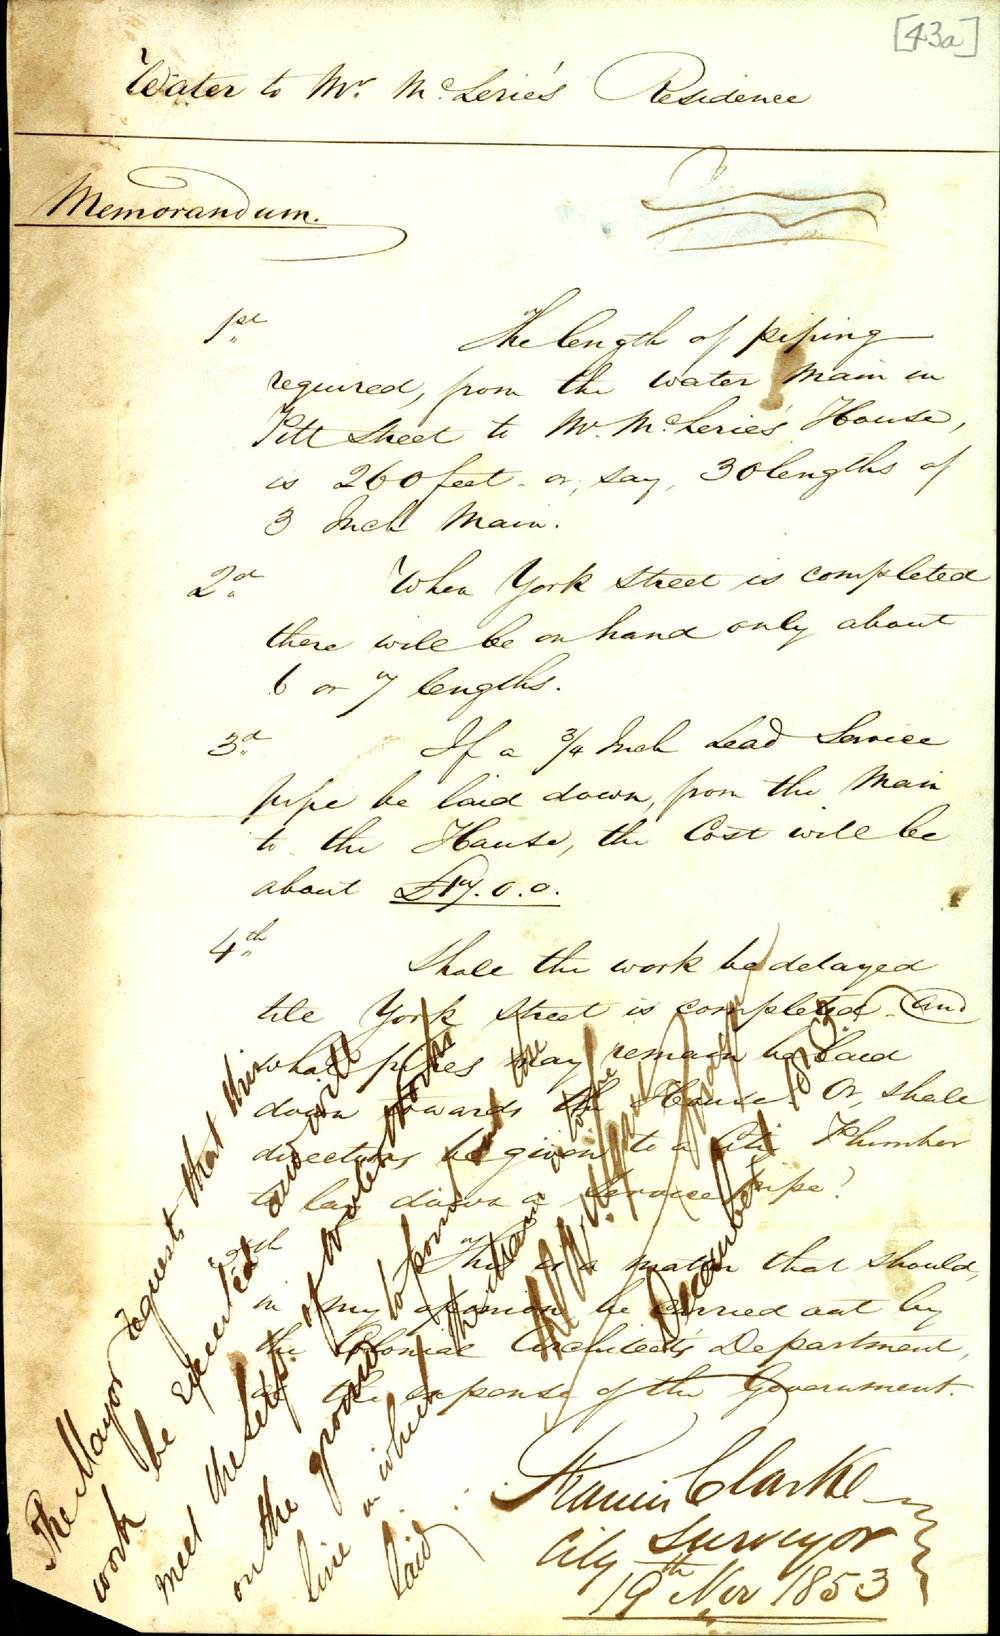 [43a]
Water to Mr. McLerie's Residence
Memorandum.
1st The length of piping
required, from the water Main in
Pitt Street to Mr. McLerie's House,
is 260 feet - or, say, 30 lengths of
3 Inch Main.
2d When York Street is completed
there will be on hand only about
6 or 7 lengths.
3d If a 3/4 Inch Lead Service
pipe be laid down, from the Main
to the House, the Cost will be
about £17.0.0.
4th Shall the work be delayed
till York Street is completed and
what pipes may remain be laid
down towards the House. Or, shall
directions be given to a City Plumber
to lay down a Service pipe?
5th This is a matter that should,
in my opinion be carried out by
the Colonial Architect's Department,
at the expense of the Government.
Francis Clarke
City Surveyor
19th Nov 1853
The Mayor requests that this
work be executed and will
meet the Self of Waterworks
on the ground to point out the
line in which the drain to be
laid
December 1853